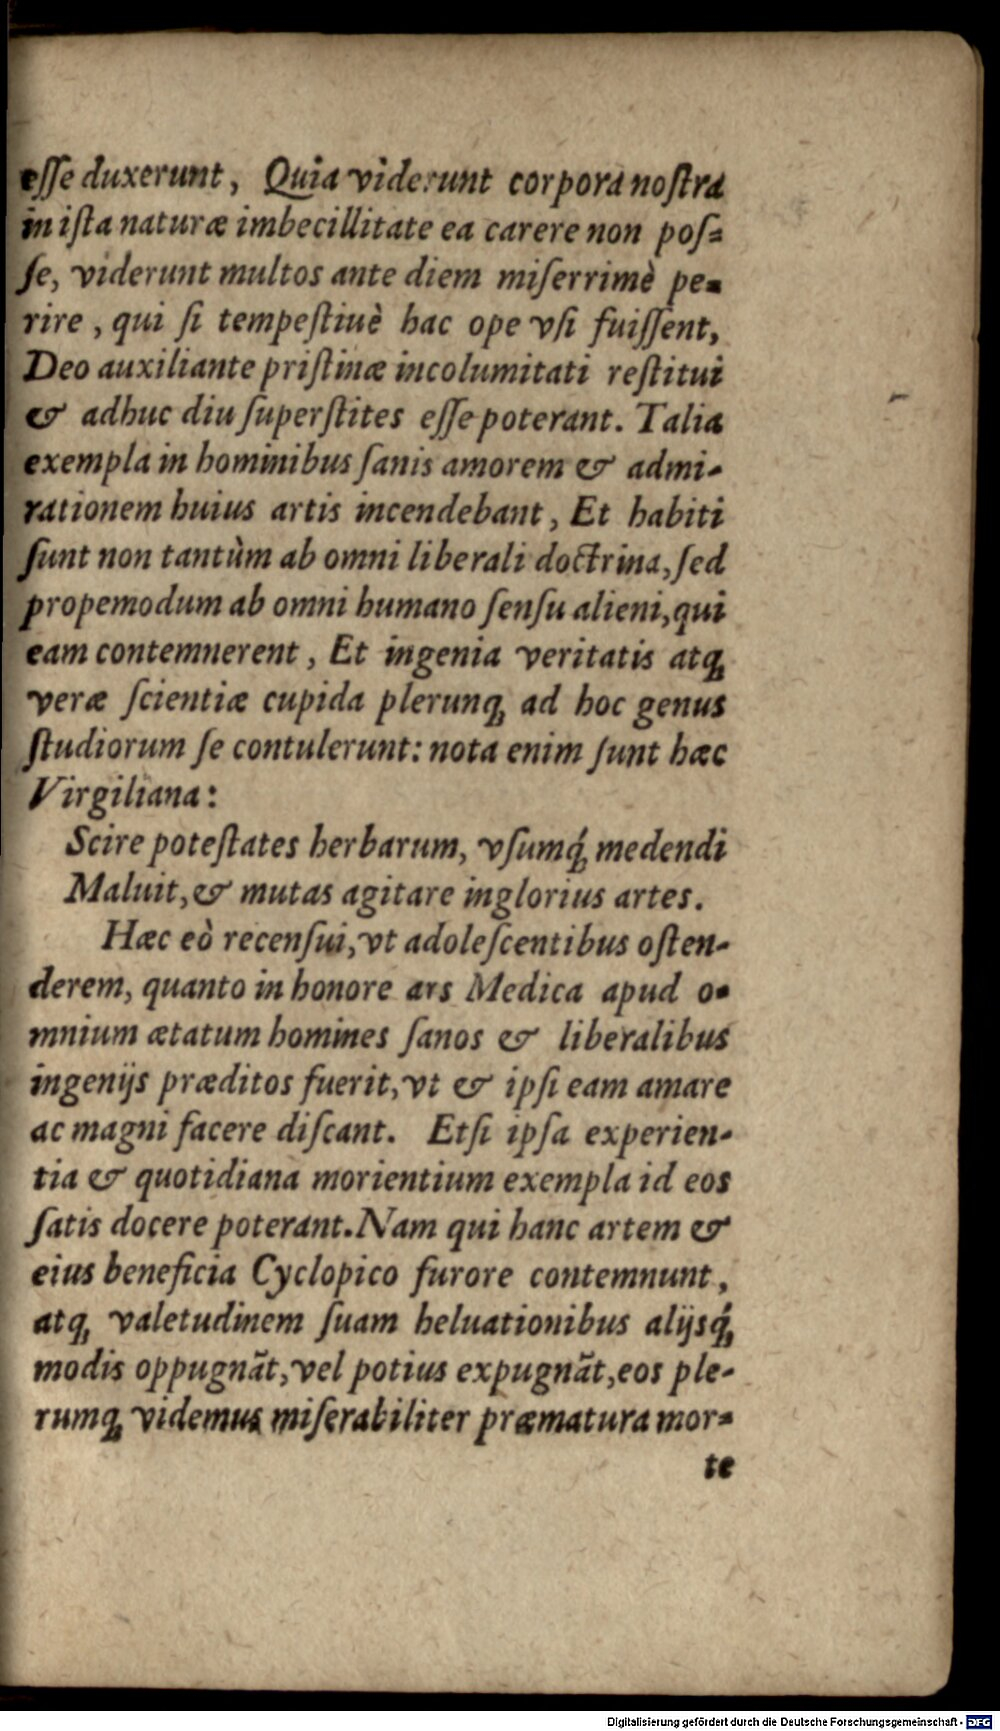 eſſe duxerunt, Quia viderunt corpora noſtra
in iſta naturæ imbecillitate ea carere non poſ-
ſe, viderunt multos ante diem miſerrimè pe-
rire, qui ſi tempeſtiuè hac ope vſi fuiſſent,
Deo auxiliante priſtinæ incolumitati reſtitui
& adhuc diu ſuperſtites eſſe poterant. Talia
exempla in hominibus ſanis amorem & admi-
rationem huius artis incendebant, Et habiti
ſunt non tantùm ab omni liberali doctrina, ſed
propemodum ab omni humano ſenſu alieni, qui
eam contemnerent, Et ingenia veritatis atq;
veræ ſcientiæ cupida plerunq; ad hoc genus
ſtudiorum ſe contulerunt: nota enim ſunt hæc
Virgiliana:
Scire poteſtates herbarum, vſumq́; medendi
Maluit, & mutas agitare inglorius artes.
Hæc eò recenſui, vt adoleſcentibus oſten-
derem, quanto in honore ars Medica apud o-
mnium ætatum homines ſanos & liberalibus
ingenijs præditos fuerit, vt & ipſi eam amare
ac magni facere diſcant. Etſi ipſa experien-
tia & quotidiana morientium exempla id eos
ſatis docere poterant. Nam qui hanc artem &
eius beneficia Cyclopico furore contemnunt,
atq; valetudinem ſuam heluationibus alijsq́;
modis oppugnãt, vel potius expugnãt, eos ple-
rumq; videmus miſerabiliter præmatura mor-
te
Digitalisierung gefördert durch die Deutsche Forschungsgemeinschaft - DFG